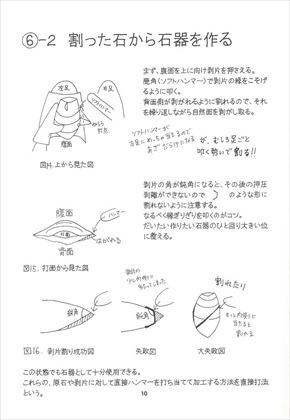 ⑥-2 割った石から石器を作る
まず、腹面を上に向け剥片を押さえる。
鹿角（ソフトハンマー）で剥片の縁をこそげ
るように叩く。
背面側が剥がれるように割れるので、それ
を繰り返しながら自然面を剥がし取る。
左足
右足
ソフトハンマー
図14．上から見た図
ソフトハンマーが
左足にめっちゃ当たるので
あざだらけになる
が、むしろ足ごと
叩く勢いで割る!!
剥片の角が鈍角になると、その後の押圧
剥離ができないので
のような形に
割れないように注意する。
なるべく縁ぎりぎりを叩くのがコツ。
だいたい作りたい石器のひと回り大きい位
に整える。
腹面
ハンマー
打面
はがれる
背面
図15．打面から見た図
鋭角
鈍角
割れたり
図16．剥片割り成功図
失敗図
大失敗図
この状態でも石器として十分使用できる。
これらの、原石や剥片に対して直接ハンマーを打ち当てて加工する方法を直接打法
という。
10